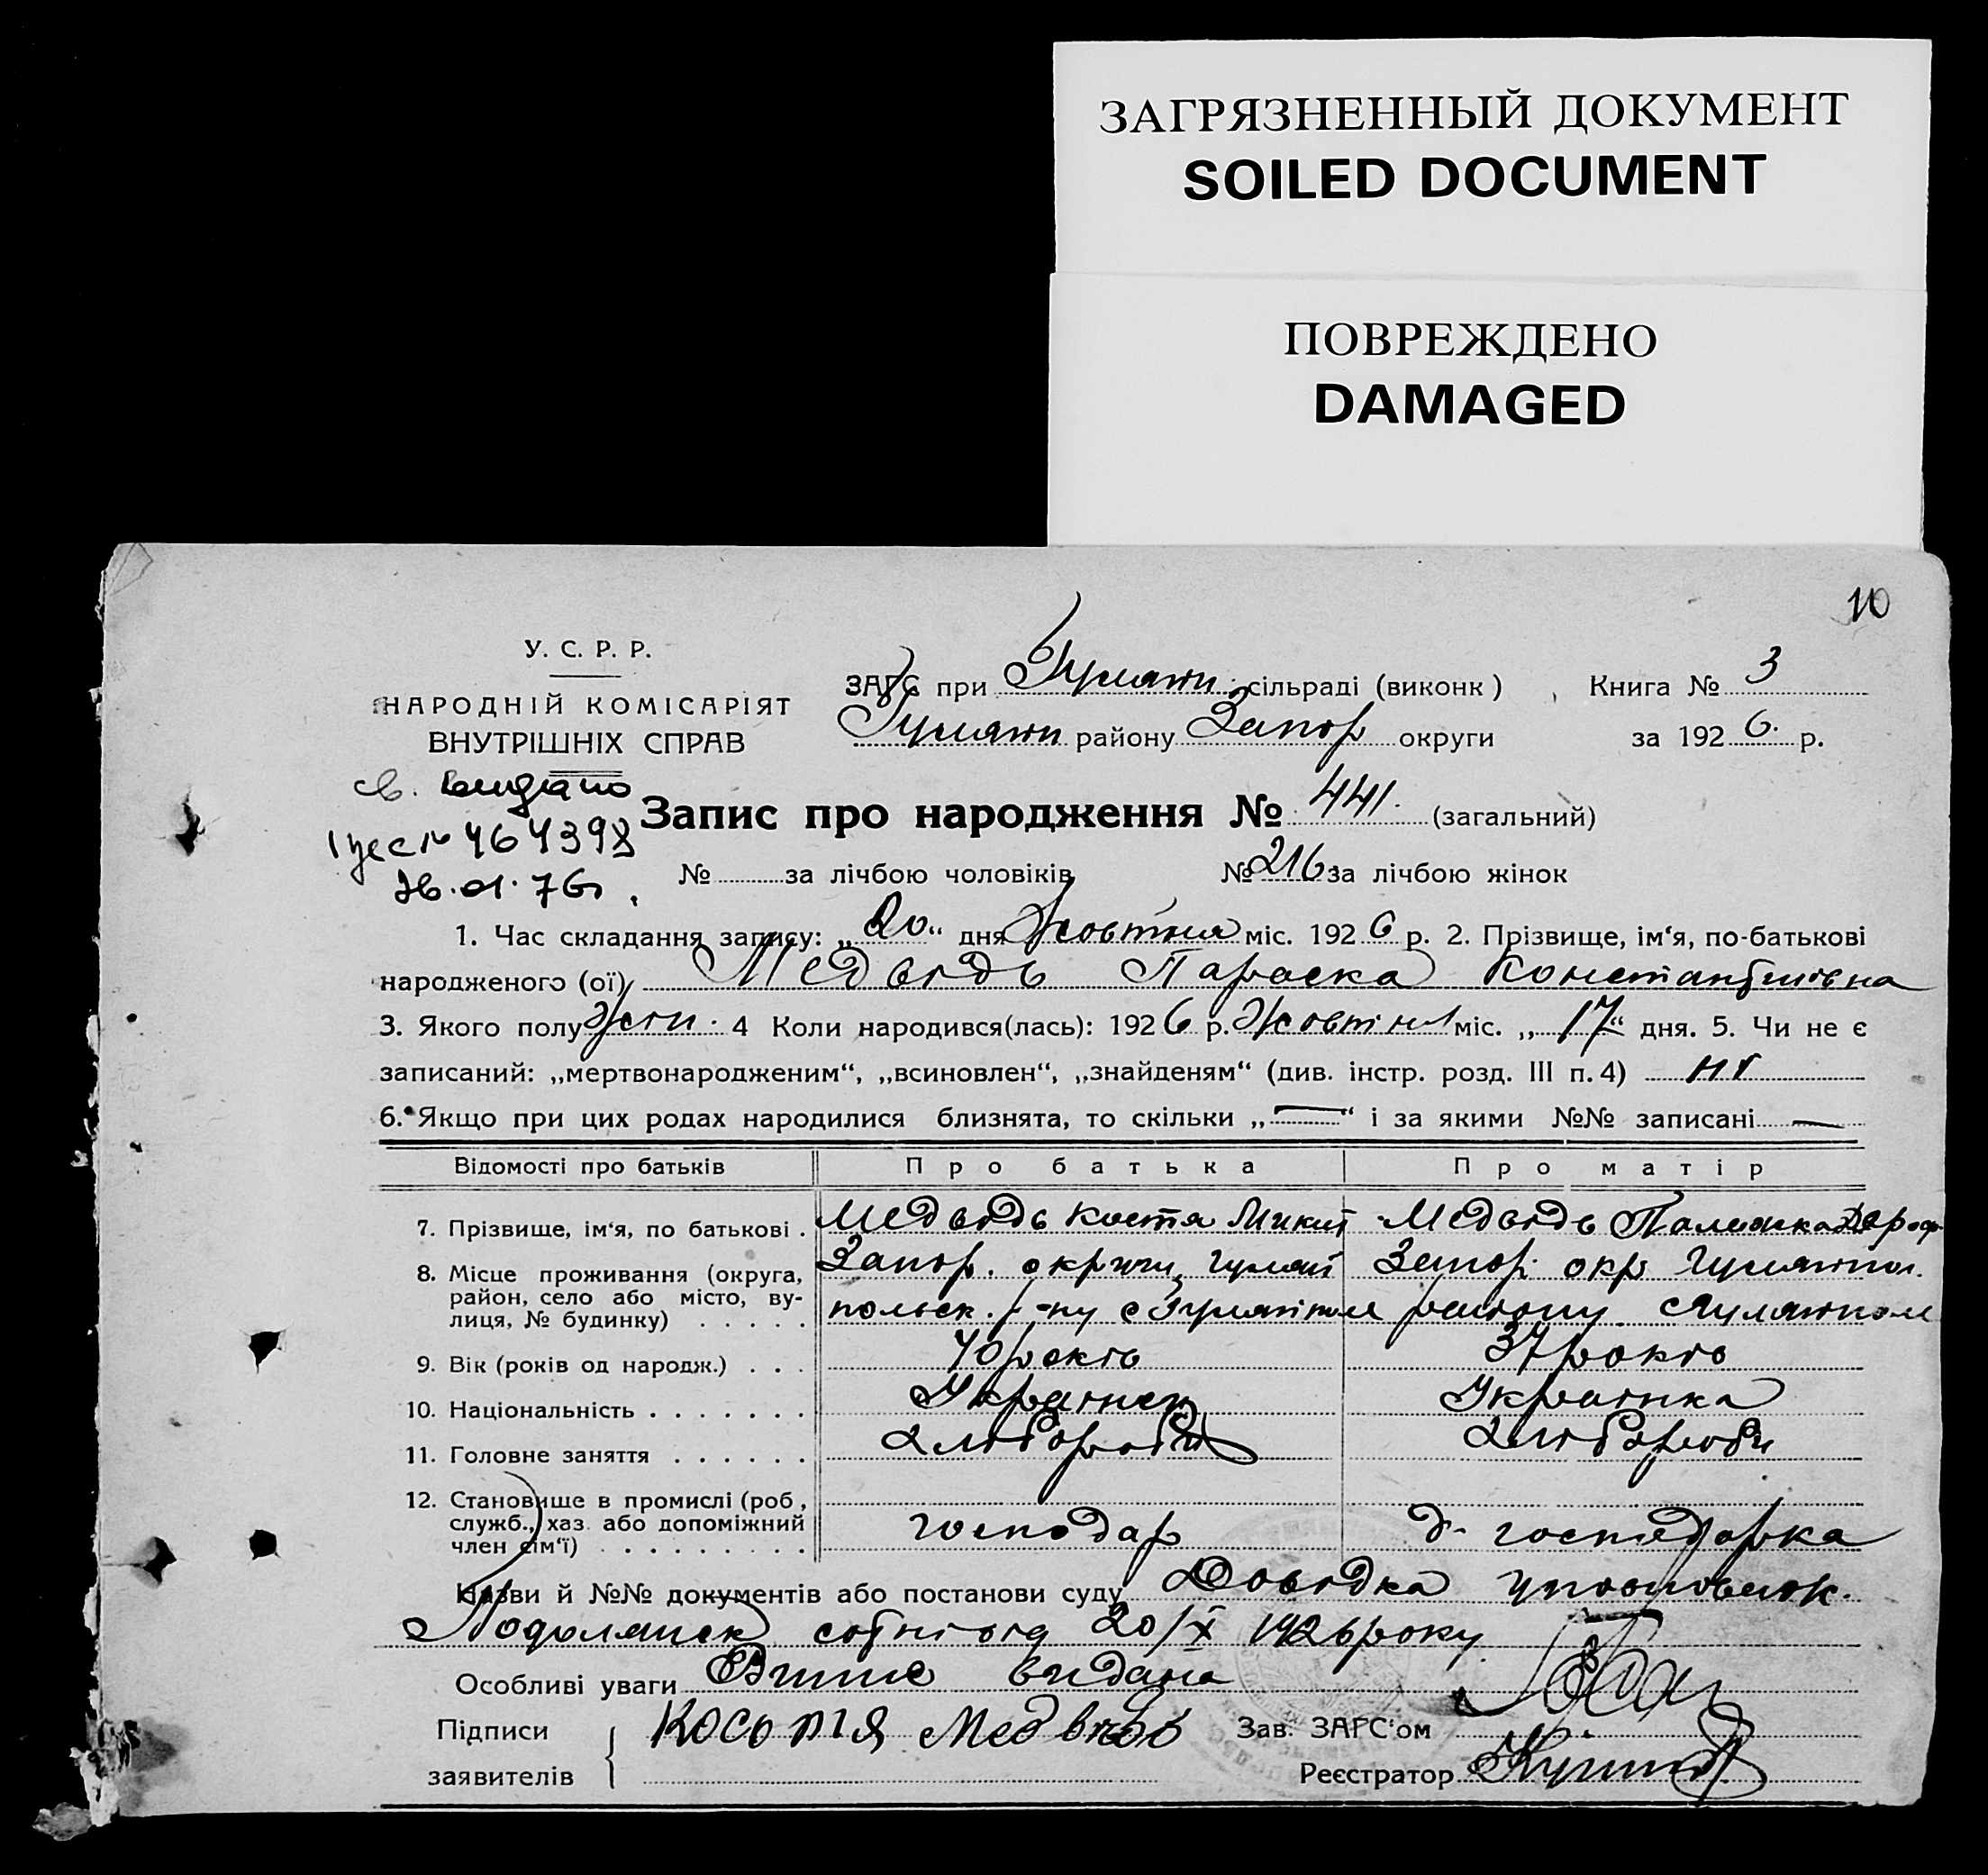 ЗАГРЯЗНЕННЫЙ ДОКУМЕНТ
SOILED DOCUMENT
ПОВРЕЖДЕНО
DAMAGED
10
У. С. Р. Р.
НАРОДНІЙ КОМІСАРІЯТ
ВНУТРІШНІХ СПРАВ
ЗАГС при Гуляйп. сільраді (виконк) Книга № 3
Гуляйп району Запор округи за 1926. р.
св. видано
464398
26.01.76
Запис про народження № 441. (загальний)
№ за лічбою чоловіків № 216 за лічбою жінок
1. Час складання запису: „20“ дня Жовтня міс. 1926 р. 2. Прізвище, ім‘я, по-батькові
народженого (ої) Медвідь Параска Константинівна
3. Якого полу Жін. 4 Коли народився(лась): 1926 р. Жовтня міс. „17“ дня. 5. Чи не є
записаний: „мертвонародженим“, „всиновлен“, „знайденям“ (див. інстр. розд. III п. 4) ні
6. Якщо при цих родах народилися близнята, то скільки „—“ і за якими №№ записані —
Відомості про батьків Про батька Про матір
7. Прізвище, ім‘я, по батькові . Медвідь Костя Микит Медвідь Палажка Дороф
8. Місце проживання (округа, район, село або місто, вулиця, № будинку) . . . . . Запор. округи, Гуляй Запор. окр Гуляйпол.
польск. р-ну с Гуляйполе району с Гуляйполе
9. Вік (років од народж.) . . . 40 років 37 років
10. Національність . . . . . . . Українець Українка
11. Головне заняття . . . . . . Хлібороб Хлібороби
12. Становище в промислі (роб, служб., хаз. або допоміжний член сім‘ї) . . . . . . . . . господар д. господарка
Назви й №№ документів або постанови суду Довідка уповновж.
Подолянск сотні від 20/X 1926 року
Особливі уваги Випис видана
Підписи Косьтя Медвідь Зав. ЗАГС‘ом
заявителів Реєстратор